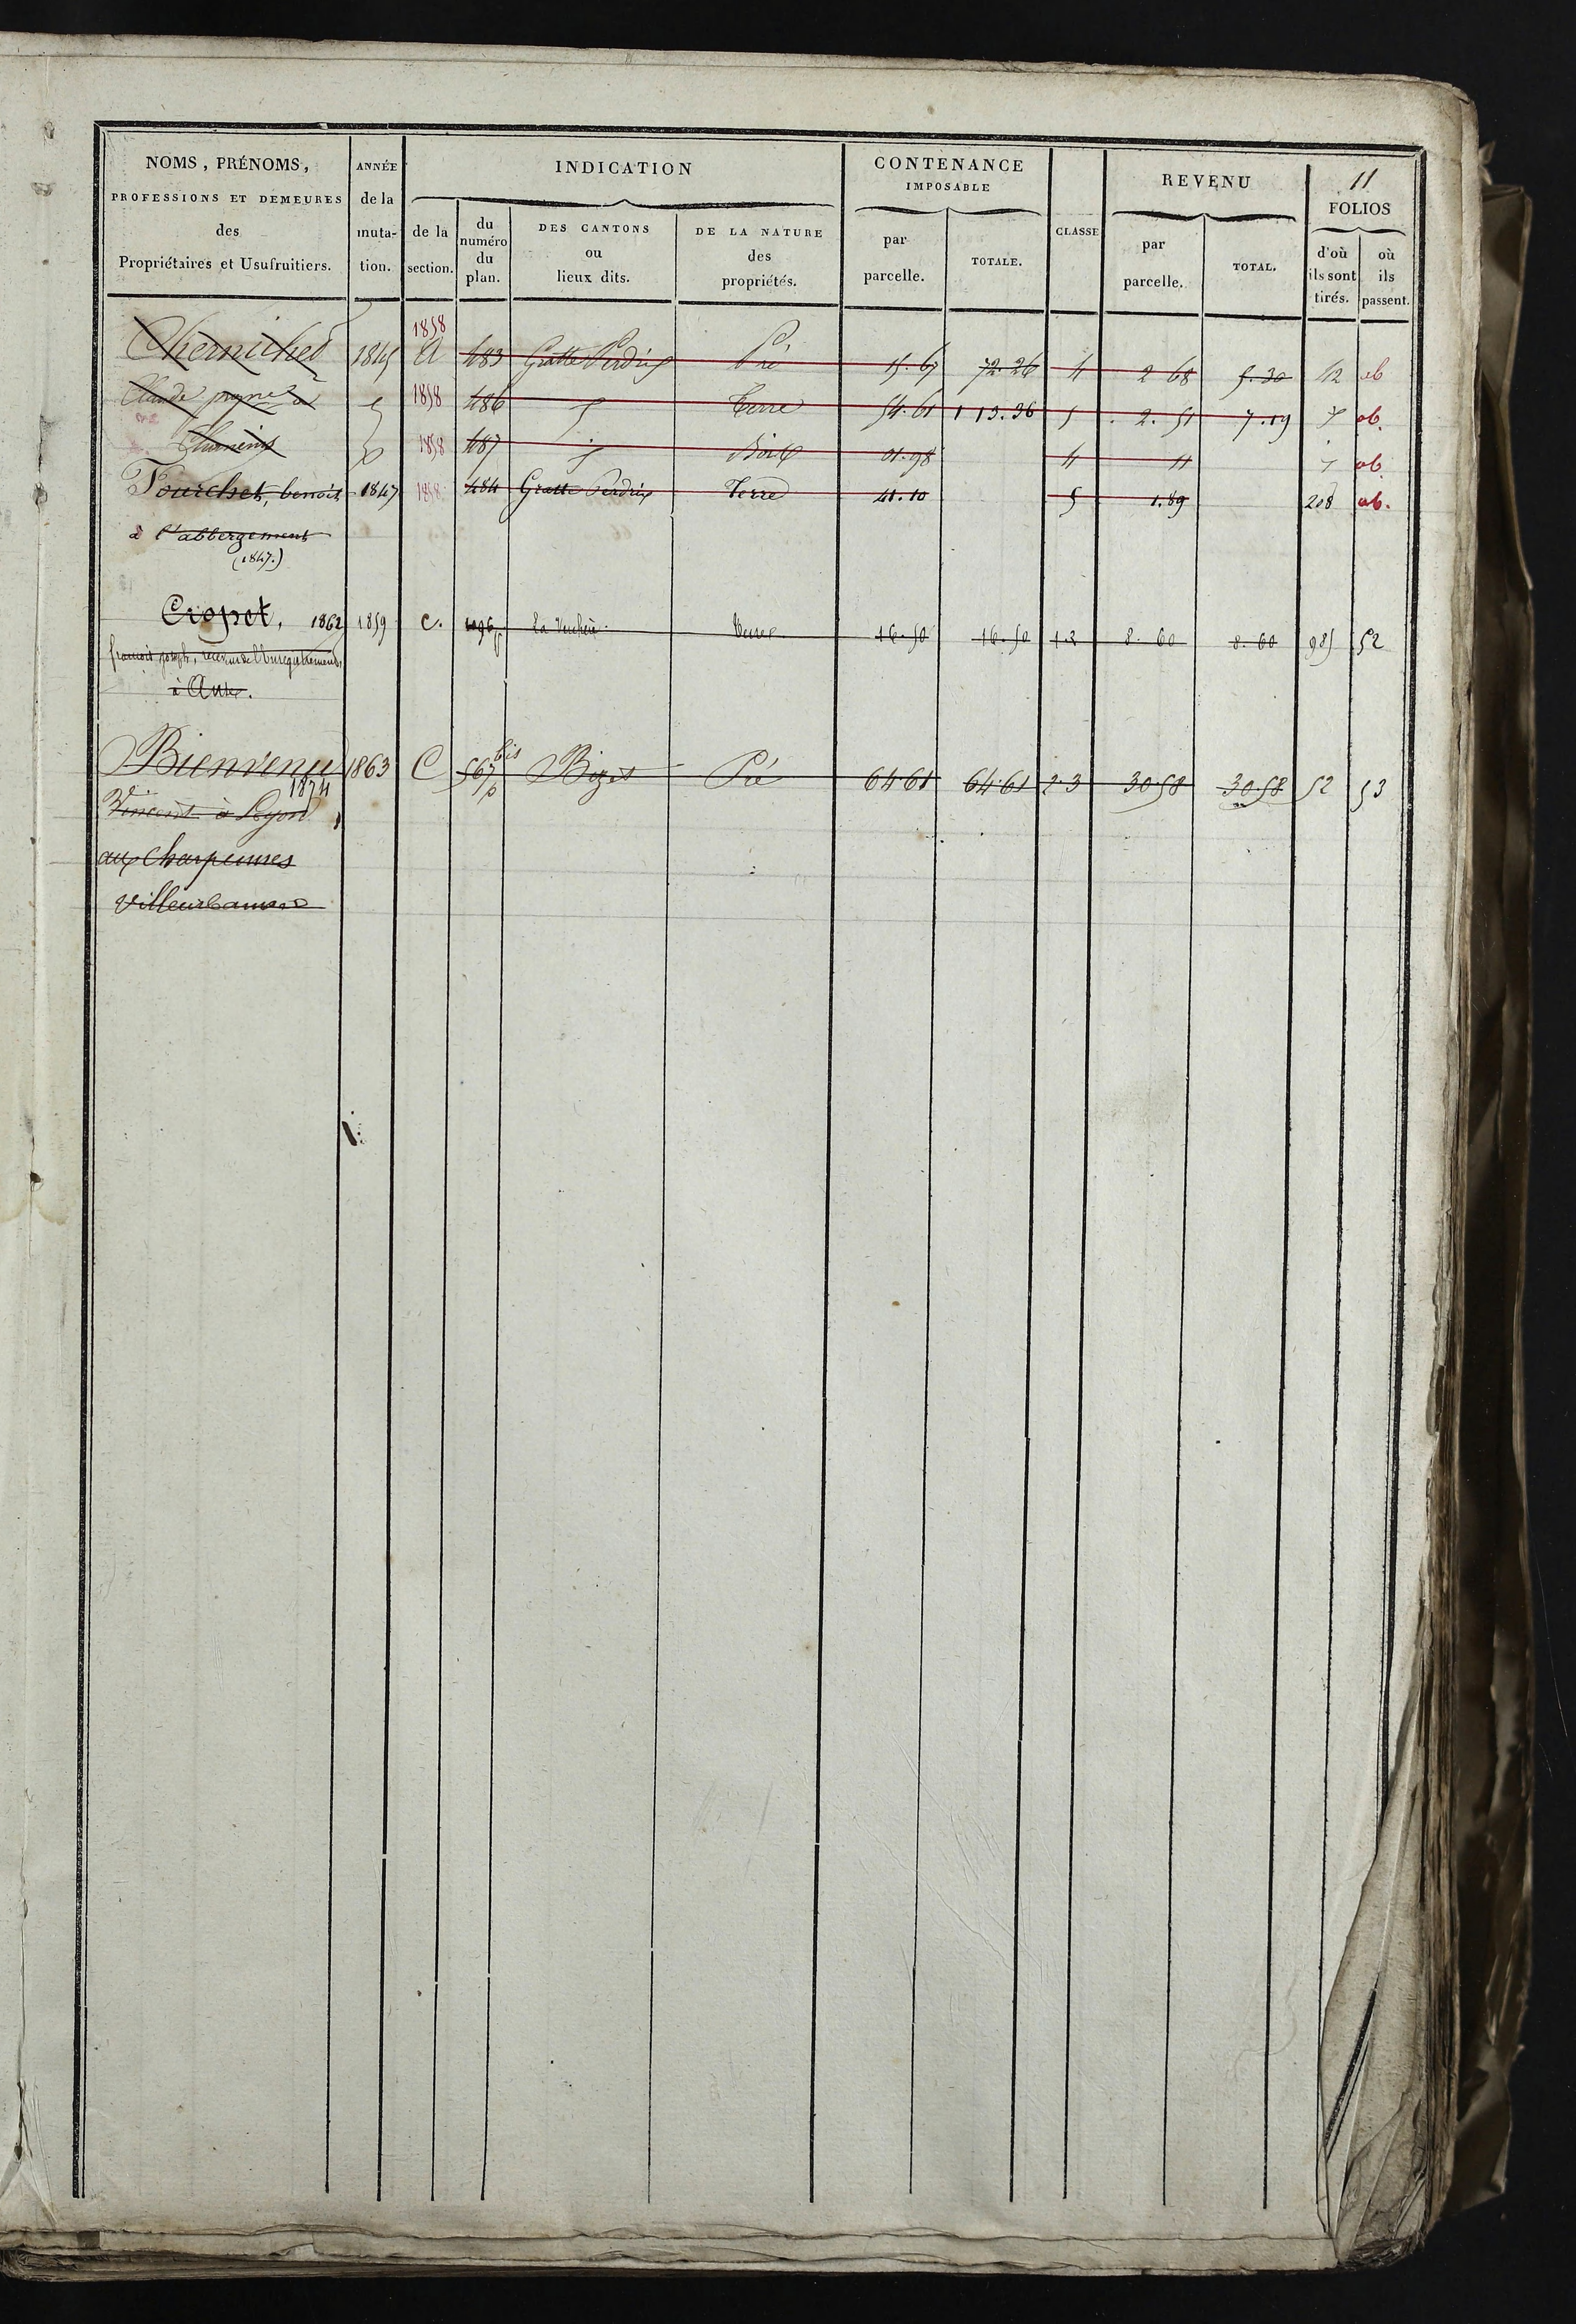 11
NOMS, PRÉNOMS, PROFESSIONS ET DEMEURES des Propriétaires et Usufruitiers.
ANNÉE de la muta- tion.
INDICATION
de la section.
du numéro du plan.
DES CANTONS ou lieux dits.
DE LA NATURE des propriétés.
CONTENANCE IMPOSABLE
par parcelle.
TOTALE.
CLASSE
REVENU
par parcelle.
TOTAL.
FOLIOS
d'où ils sont tirés.
où ils passent.
1858
1845 A 483 Gratte Perdrix Pré 15.67 72.26 4 2 68 5.30 12 ab
Claude 1858 486 Terre 54.61 1 13.36 5 2.51 7.19 ab.
1858 487 Bois 01.98 4 11 ab
Fourchet, benoit 1847 1858 484 Gratte Perdrix Terre 41.10 5 1.89 208 ab.
à l'abbergement
(1847.)
Cropet, 1862 1859 C. La Verchère Terre 16.50 16.50 1.2 8.60 8.60 985 52
françois joseph, receveur de l'Enregistrement,
à
Bienvenu 1863 C 567 bis p Bizet Pré 64 61 64.61 2.3 30.58 30.58 52 53
1874
Vincent à Lyon
aux Charpennes
Villeurbanne